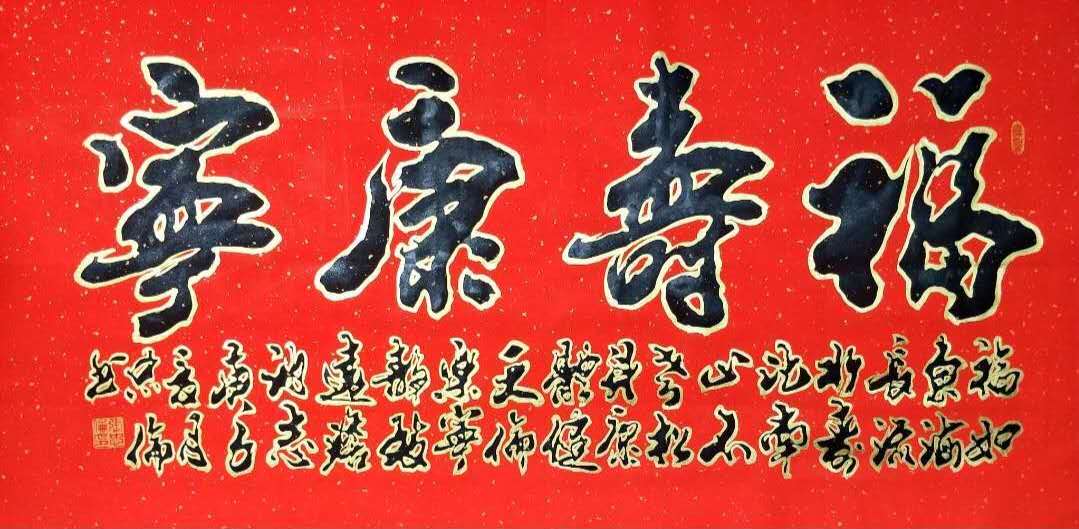 福壽康寧
福如
東海
長流
水壽
比南
山不
老松
身康
體健
天倫
樂寧
靜致
遠
志
庚子
月
倫
书